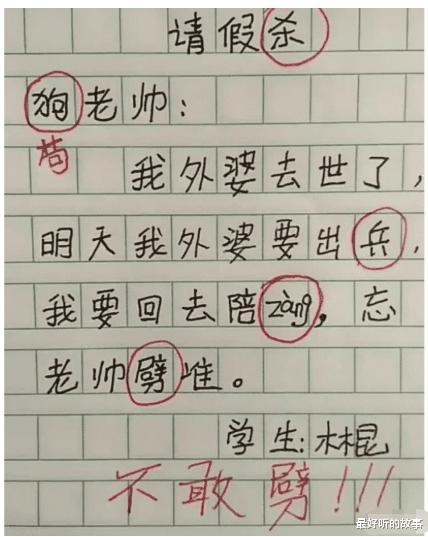 请假杀
狗老帅：
苟
我外婆去世了，
明天我外婆要出兵，
我要回去陪zàng，忘
老帅劈唯。
学生：木棍
不敢劈!!!
最好听的故事